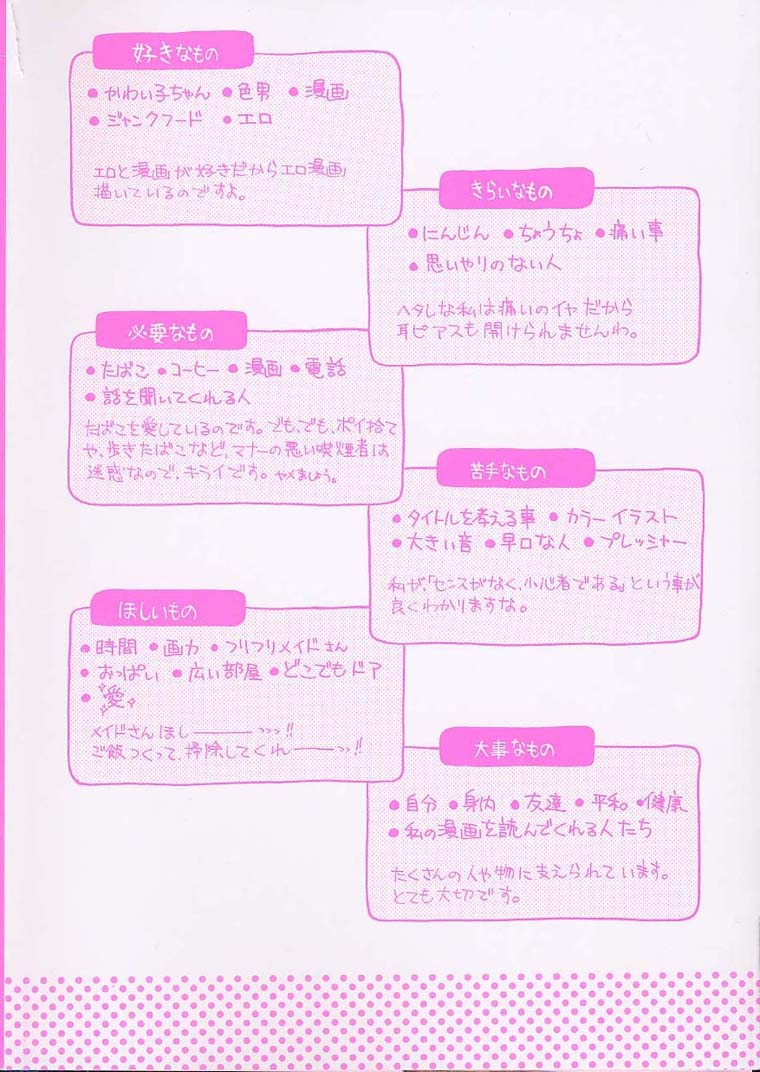 好きなもの
●かわい子ちゃん ●色男 ●漫画
●ジャンクフード ●エロ
エロと漫画が好きだからエロ漫画
描いているのですよ。
きらいなもの
●にんじん ●ちょうちょ ●痛い事
●思いやりのない人
ヘタレな私は痛いのイヤだから
耳ピアスも開けられませんわ。
必要なもの
●たばこ ●コーヒー ●漫画 ●電話
●話を聞いてくれる人
たばこを愛しているのです。でも、でも、ポイ捨て
や、歩きたばこなど、マナーの悪い喫煙者は
迷惑なので、キライです。ヤメましょう。
苦手なもの
●タイトルを考える事 ●カラーイラスト
●大きい音 ●早口な人 ●プレッシャー
私が、「センスがなく、小心者である』という事が
良くわかりますな。
ほしいもの
●時間 ●画力 ●フリフリメイドさん
●おっぱい ●広い部屋 ●どこでもドア
●愛
メイドさんほし―――っっっ!!
ご飯つくって、掃除してくれ―――っっ!!
大事なもの
●自分 ●身内 ●友達 ●平和。●健康
●私の漫画を読んでくれる人たち
たくさんの人や物に支えられています。
とても大切です。